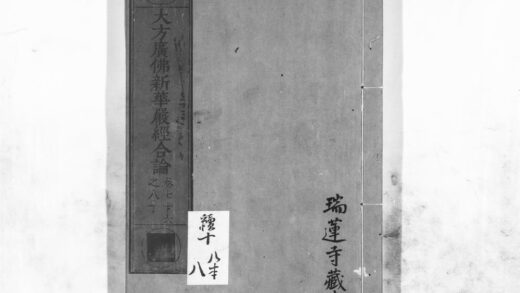 大方廣佛新華嚴經合論
之八十
十
八本
八
瑞蓮寺藏